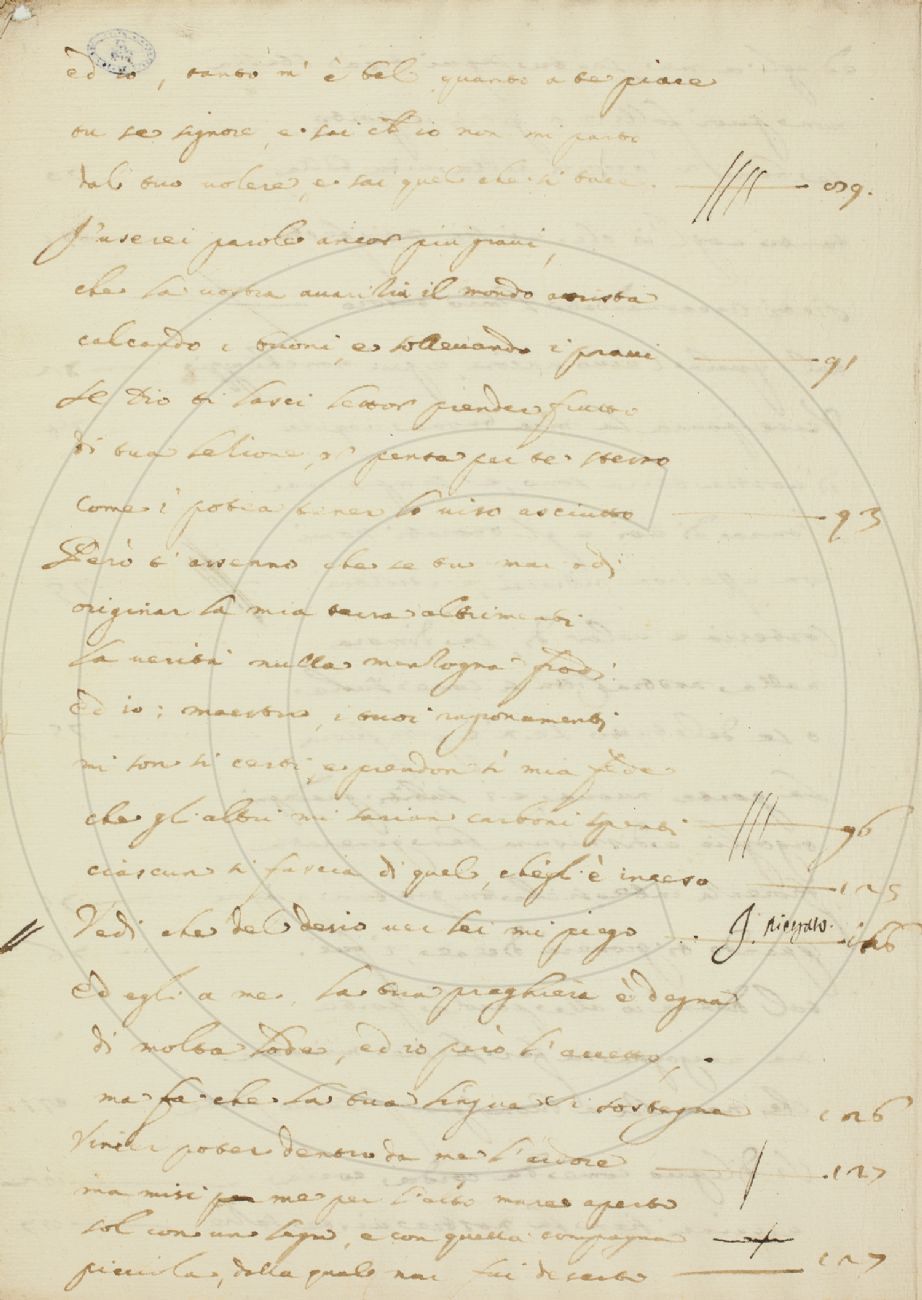 ed io, tanto m'è bel quanto a te piace
tu se signore, e sai ch'io non mi parto
dal tuo volere, e sai quel che si tace. 89.
I' userei parole ancor piu gravi,
che la vostra avarizia il mondo attrista
calcando i buoni, e sollevando i pravi 91
Se Dio ti lasci lettor prender frutto
di tua lezione, or pensa per te stesso
come i' potea tener lo viso asciutto 93
Però t'assenno che se tu mai odi
originar la mia terra altrimenti
la verità nulla menzogna frodi.
Ed io: maestro, i tuoi ragionamenti
mi son si certi, e prendon sì mia fede
che gli altri mi sarian carboni spenti 96
ciascun si fascia di quel, ch'egli è inceso 125
Vedi, che del desio ver lei mi piego
Ed egli a me, la tua preghiera è degna
di molta lode, ed io però l'accetto,
ma fa che la tua lingua si sostegna 126
Vincer poter dentro da me l'ardore 127
ma misi me per l'alto mare aperto
sol con un legno, e con quella compagna
picciola, dalla qual non fui deserto 127